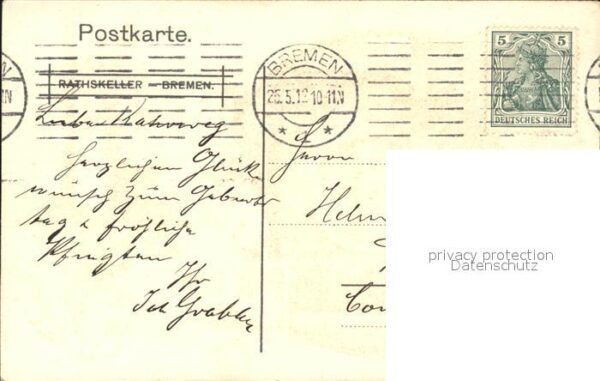 Postkarte.
RATHSKELLER - BREMEN.
BREMEN
25.5.12 10-11.N
5 5
DEUTSCHES REICH
Lieber
herzlichen Glück
wunsch zum Geburts
tag & fröhliche
Pfingsten
Ihr
Joh
Herrn
privacy protection
Datenschutz